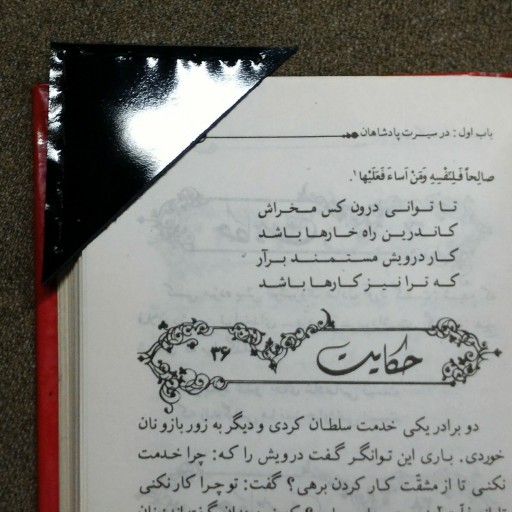 باب اول : در سیرت پادشاهان
صالِحاً فَلِنَفْسِهِ وَمَنْ اَساءَ فَعَلَیْها ۱.
تا توانی درون کس مخراش
کاندرین راه خارها باشد
کار درویش مستمند برآر
که ترا نیز کارها باشد
حکایت ۳۶
دو برادر یکی خدمت سلطان کردی و دیگر به زور بازو نان
خوردی. باری این توانگر گفت درویش را که: چرا خدمت
نکنی تا از مشقّت کار کردن برهی؟ گفت: تو چرا کار نکنی